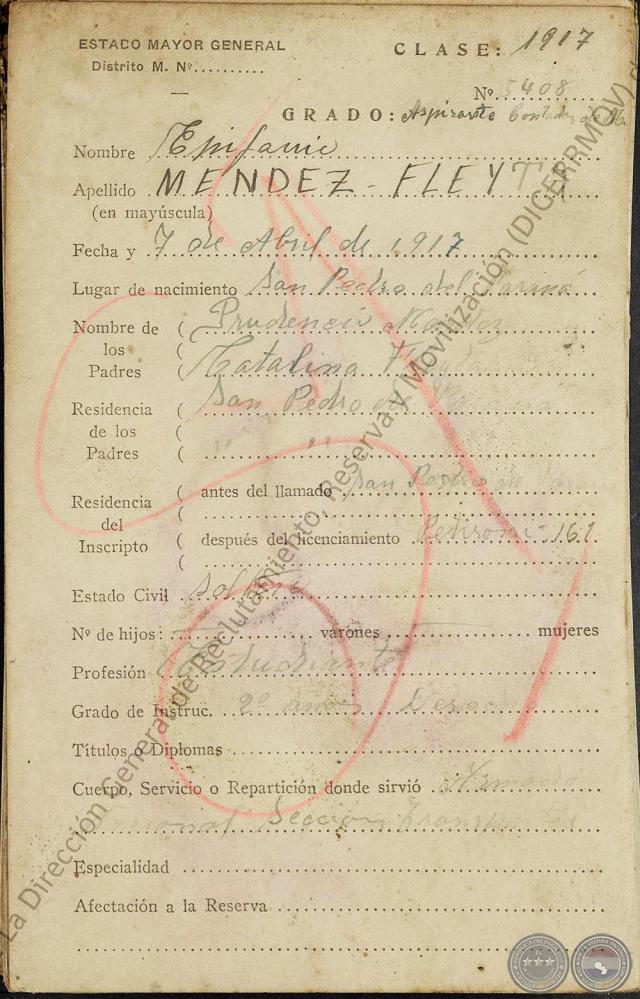 ESTADO MAYOR GENERAL
Distrito M. Nº..........
CLASE: 1917
Nº 5408
GRADO: Aspirante Contador de
Nombre Epifanio
Apellido MENDEZ - FLEYT
(en mayúscula)
Fecha y 7 de Abril de 1917
Lugar de nacimiento San Pedro del Paraná
Nombre de los Padres ( Prudencio
( Catalina
Residencia de los Padres ( San Pedro del Paraná
( " "
Residencia del Inscripto ( antes del llamado San Pedro
( después del licenciamiento 161
Estado Civil soltero
Nº de hijos: varones mujeres
Profesión Estudiante
Grado de Instruc. 2º Derecho
Títulos o Diplomas
Cuerpo, Servicio o Repartición donde sirvió
Sección
Especialidad
Afectación a la Reserva
La Dirección General de Reclutamiento, Reserva y Movilización (DIGERRMOV)